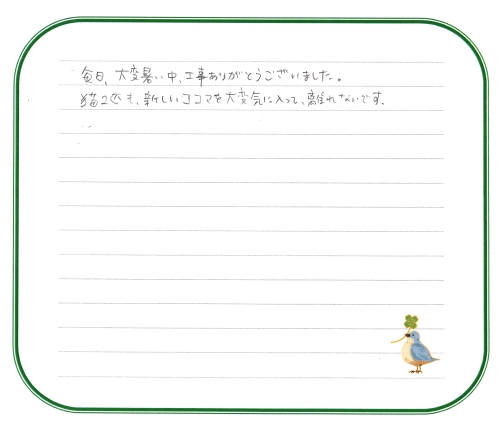 毎日、大変暑い中、工事ありがとうございました。
猫2匹も、新しいココマを大変気に入って、離れないです.